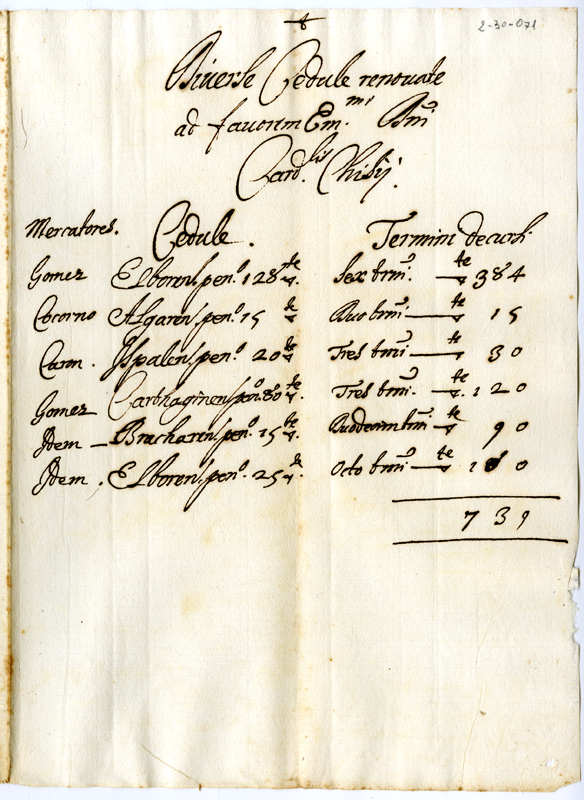 2-30-071
Diverse Cedule renovate
ad favorem Em.mi Dni
Card.lis Chisij.
Mercatores. Cedule. Termini decursi.
Gomez Elboren. pen.o 128 te Sex trmi. te 384
Cocorno Algaren. pen.o 15 te Duo trmi te 15
Carm. Ispalen. pen.o 20 te Tres trmi te 30
Gomez Carthaginen. pen.o 80 te Tres trmi. te 120
Idem Bracharen. pen.o 15 te Duodecim trmi te 90
Idem. Elboren. pen.o 25 te Octo trmi te 100
739